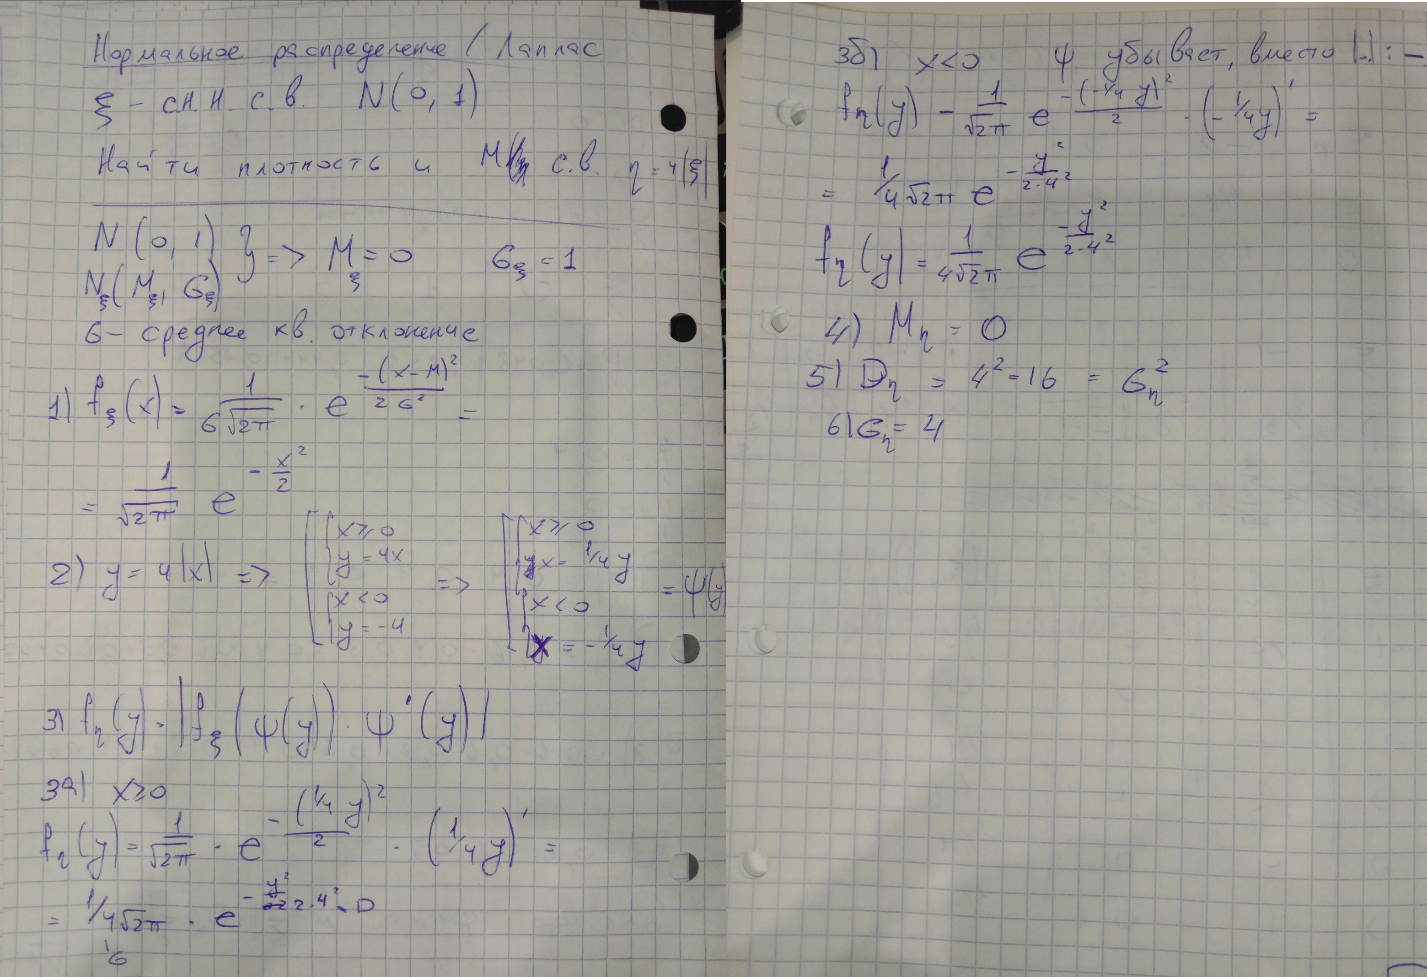 Нормальное распределение / Лаплас
ξ - сл. н. с. в. N(0, 1)
Найти плотность и Mη с.в. η = 4|ξ|
N(0, 1) } => Mξ = 0 σξ = 1
Nξ(Mξ, σξ)
σ - среднее кв. отклонение
1) fξ(x) = 1/(σ√2π) · e^(-(x-M)²/2σ²) =
= 1/√2π e^(-x²/2)
2) y = 4|x| => [ { x ≥ 0 y = 4x { x < 0 y = -4 => [ { x ≥ 0 x = 1/4 y { x < 0 x = -1/4 y = ψ(y)
3) fη(y) = |fξ(ψ(y)) · ψ'(y)|
3а) x ≥ 0
fη(y) = 1/√2π · e^(-(1/4 y)²/2) · (1/4 y)' =
= 1/4√2π · e^(-y²/2·4²)
σ
3б) x < 0 ψ убывает, вместо |..| : -
fη(y) - 1/√2π e^(-(-1/4 y)²/2) · (-1/4 y)' =
= 1/4√2π e^(-y²/2·4²)
fη(y) = 1/4√2π e^(-y²/2·4²)
4) Mη = 0
5) Dη = 4² = 16 = ση²
6) ση = 4